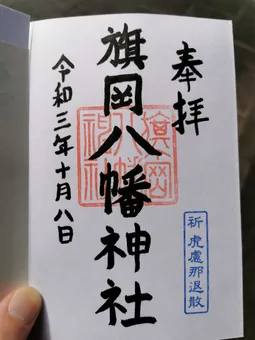 奉拝
旗岡八幡神社
令和三年十月八日
旗岡八幡神社
祈虎慮那退散